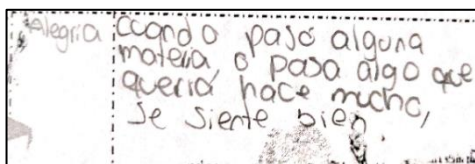 Alegria
cuando paso alguna
materia o pasa algo que
queria hace mucho,
se siente bien